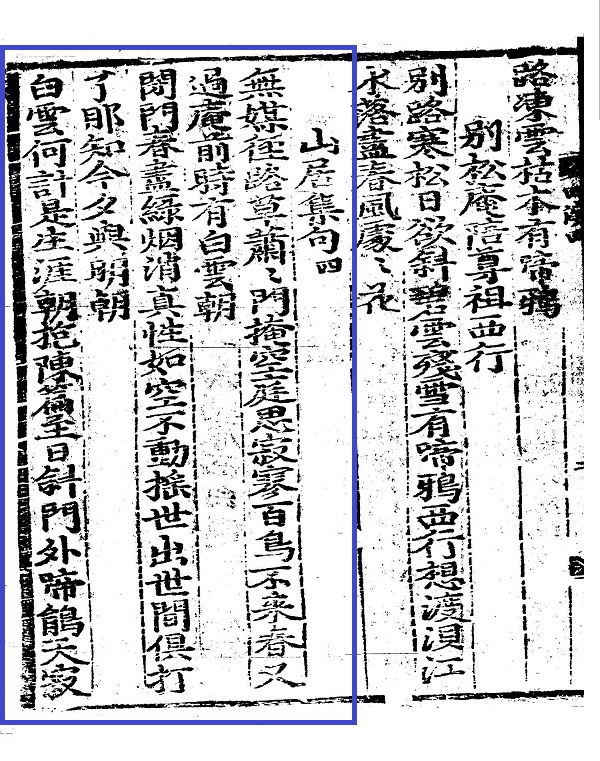 路凍雲枯木有啼鴉
別松庵陪尊祖西行
別路寒松日欲斜碧雲殘雪有啼鴉西行想渡浿江
水落盡春風處〻花
山居集句四
無媒徑路草蕭〻門掩空庭思寂寥百鳥不來春又
過庵前時有白雲朝
閉門春盡綠烟消真性如空不動搖世出世間俱打
了那知今夕與明朝
白雲何計是生涯朝抱陳篇至日斜門外啼鵑天寂